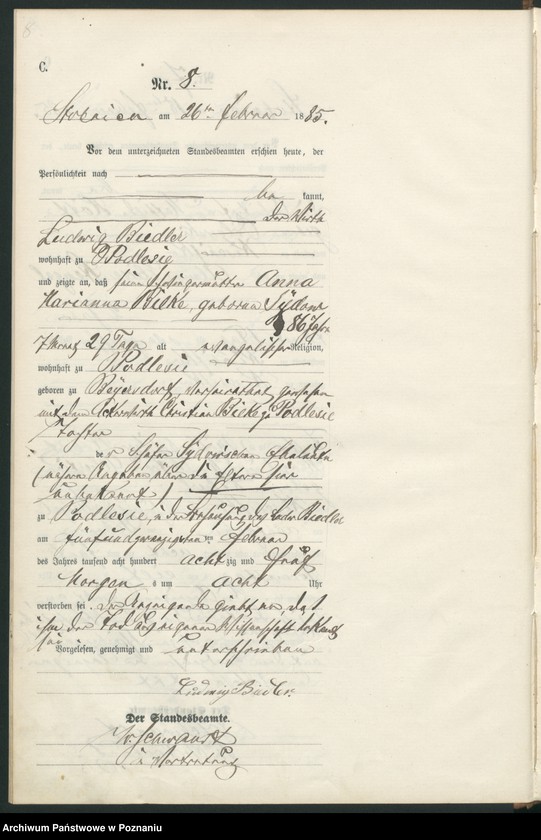 8
C.
Nr. 8.
am 26ten Februar 1885.
Vor dem unterzeichneten Standesbeamten erschien heute, der
Persönlichkeit nach
be kannt,
Der Wirth
Ludwig Biedler
wohnhaft zu Podlesie
und zeigte an, daß seine Schwiegermutter Anna
Marianna Bielke, geborene Sydow
86 Jahre
7 Monat 29 Tage alt evangelischer Religion,
wohnhaft zu Podlesie
geboren zu Beyersdorf, verheirathet gewesen
mit dem Ackerwirth Christian Bielke zu Podlesie
Tochter
der Schäfer Sydowschen Eheleute
(nähere Angaben über die Eltern hier
unbekannt)
zu Podlesie, in der Behausung des Ludw. Biedler
am fünfundzwanzigsten Februar
des Jahres tausend acht hundert acht zig und fünf
Morgen s um acht Uhr
verstorben sei. Der Anzeigende giebt an, daß
ihm der Tod aus eigener Wissenschaft bekannt
sei
Vorgelesen, genehmigt und unterschrieben
Ludwig Biedler.
Der Standesbeamte.
in Vertretung
Archiwum Państwowe w Poznaniu